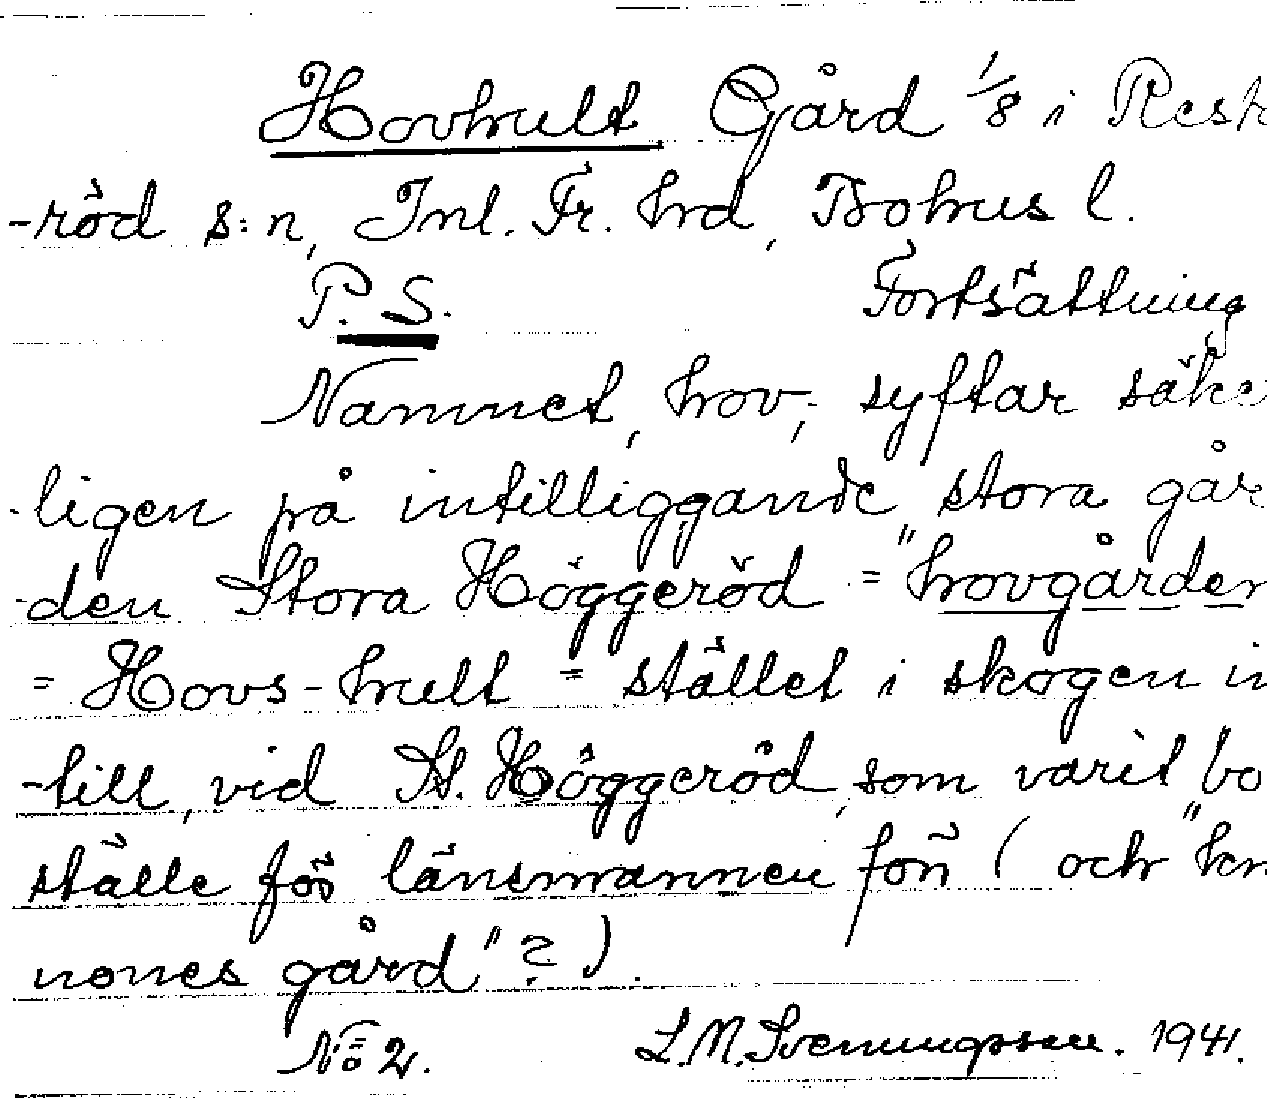 Hovhult Gård 1/8 i Resk
-röd s:n, Inl. Fr. hrd, Bohus l.
P.S. Fortsättning
Namnet, hov,- syftar säke
-ligen på intilliggande stora går
-den Stora Höggeröd = "hovgården
= Hovs-hult = stället i skogen in
-till, vid St. Höggeröd, som varit bo
ställe för länsmannen förr ( och "kro
nones gård"?).
No 2. L.M. Svenungsson. 1941.